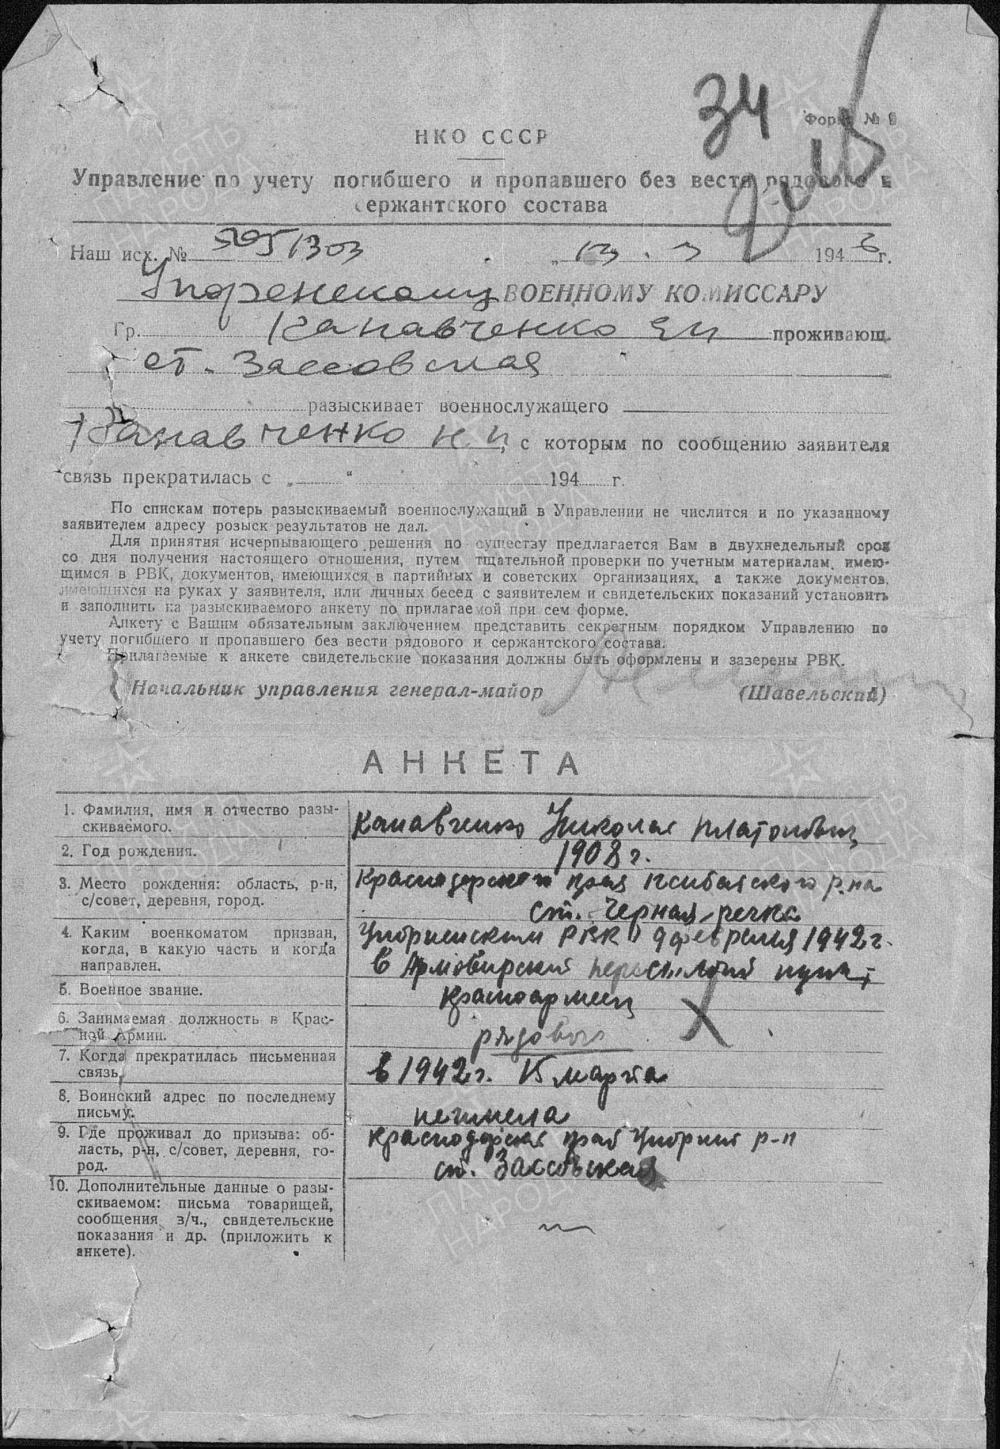 34
Форма № 9
НКО СССР
Управление по учету погибшего и пропавшего без вести рядового и
сержантского состава
Наш исх. № 1303 „13 . 3 194 6 г.
Упорненскому ВОЕННОМУ КОМИССАРУ
Гр. Капавченко проживающ.
ст. Зассовская
разыскивает военнослужащего
Капавченко Н П, с которым по сообщению заявителя
связь прекратилась с „ “ 194 г.
По спискам потерь разыскиваемый военнослужащий в Управлении не числится и по указанному
заявителем адресу розыск результатов не дал.
Для принятия исчерпывающего решения по существу предлагается Вам в двухнедельный срок
со дня получения настоящего отношения, путем тщательной проверки по учетным материалам, имею-
щимся в РВК, документов, имеющихся в партийных и советских организациях, а также документов,
имеющихся на руках у заявителя, или личных бесед с заявителем и свидетельских показаний установить
и заполнить на разыскиваемого анкету по прилагаемой при сем форме.
Анкету с Вашим обязательным заключением представить секретным порядком Управлению по
учету погибшего и пропавшего без вести рядового и сержантского состава.
Прилагаемые к анкете свидетельские показания должны быть оформлены и заверены РВК.
Начальник управления генерал-майор (Шавельский)
АНКЕТА
1. Фамилия, имя и отчество разы-
скиваемого.
Капавченко Николая Платонович
2. Год рождения.
1908 г.
3. Место рождения: область, р-н,
с/совет, деревня, город.
Краснодарского края Псибайского р-на
ст. Черная-речка
4. Каким военкоматом призван,
когда, в какую часть и когда
направлен.
Упорненским РВК 9 февраля 1942 г.
в Армовирский пересыльный пункт
5. Военное звание.
Красноармеец
6. Занимаемая должность в Крас-
ной Армии.
рядового
7. Когда прекратилась письменная
связь.
в 1942 г. 15 марта
8. Воинский адрес по последнему
письму.
неимела
9. Где проживал до призыва: об-
ласть, р-н, с/совет, деревня, го-
род.
Краснодарская край Упорная р-н
ст. Зассовская
10. Дополнительные данные о разы-
скиваемом: письма товарищей,
сообщения з/ч., свидетельские
показания и др. (приложить к
анкете).
ПАМЯТЬ
НАРОДА